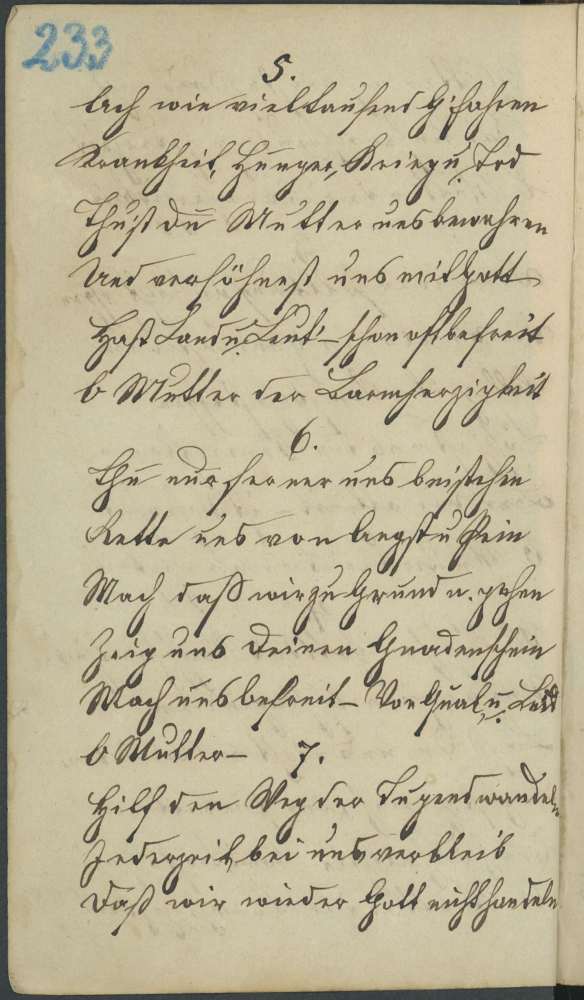 233
5.
Ach wie viel tausend G'fahren
Krankheit, Hunger, Krieg u Tod
Thu'st du Mutter uns bewahren
Und versöhnest uns mit Gott
Hast Land u Leut' – schon oft befreit
O Mutter der Barmherzigkeit
6.
Thu nur ferner uns beistehn
Rette uns von Angst u Pein
Mach daß wir zu Grund n. gehen
Zeig uns deinen Gnadenschein
Mach uns befreit – Von Qual u. Leid
O Mutter – 7.
Hilf den Weg der Tugend wandeln
Jederzeit bei uns verbleib
Daß wir wieder Gott nicht handeln